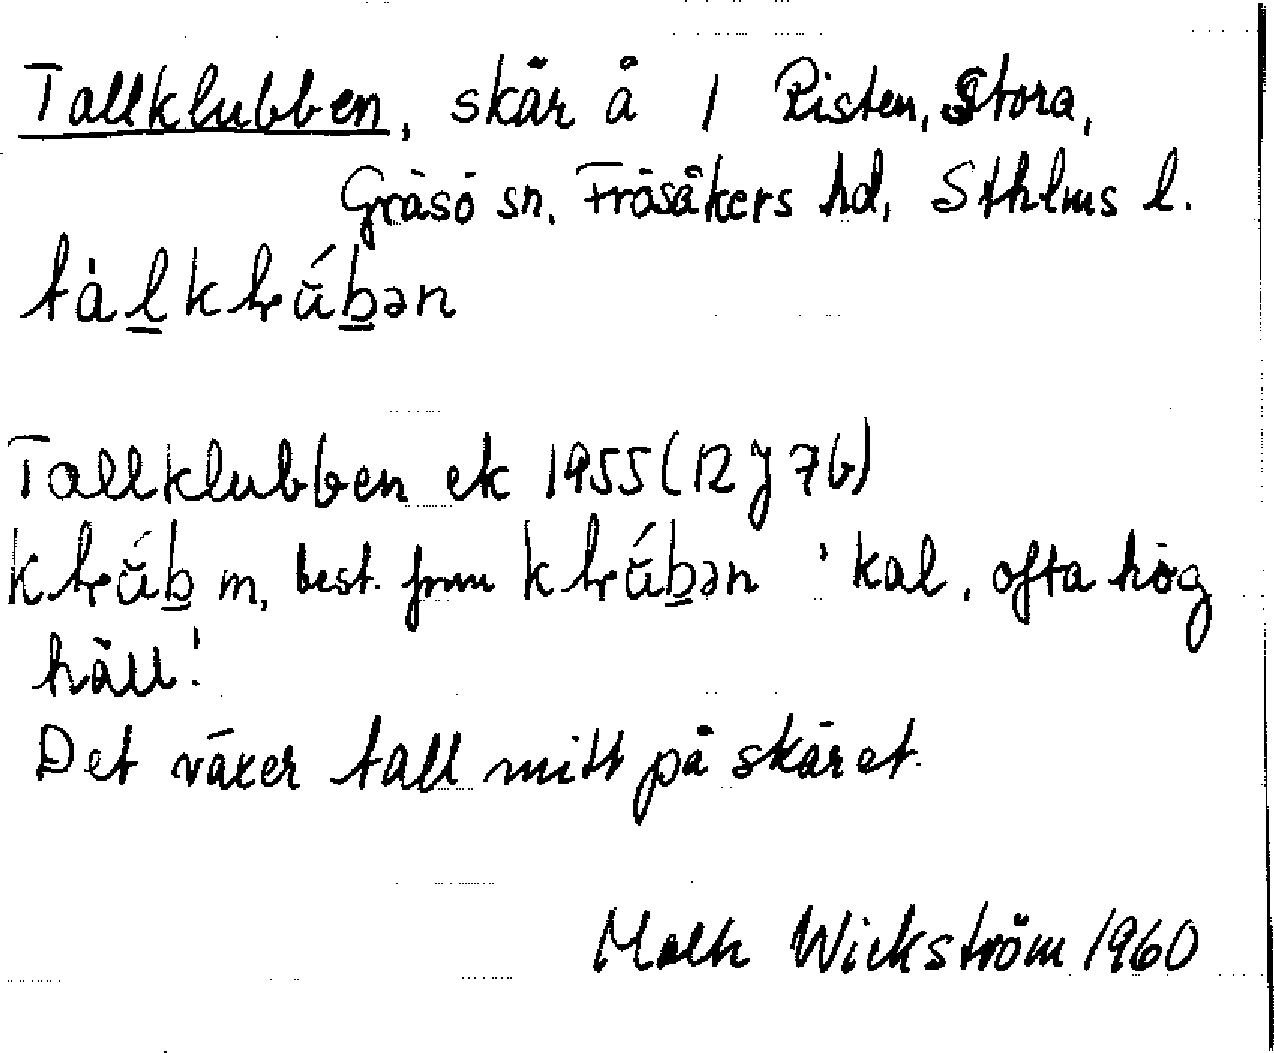 Tallklubben, skär å 1 Risten, Stora,
Gräsö sn, Frösåkers hd, Sthlms l.
tàl̲kl̥ǘb̲ən
Tallklubben ek 1955 (12 J 7b)
m, best. form 'kal, ofta hög
häll'.
Det växer tall mitt på skäret.
Wickström 1960